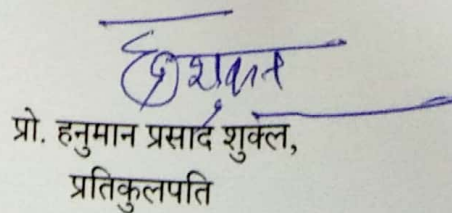 प्रो. हनुमान प्रसाद शुक्ल,
प्रतिकुलपति